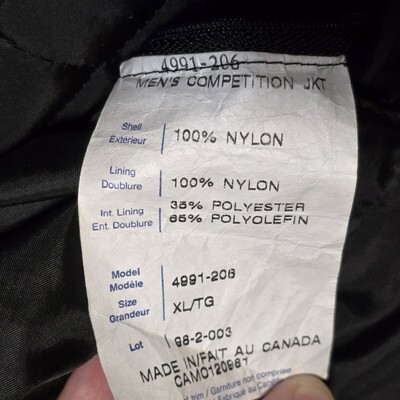 4991-206
MEN'S COMPETITION JKT
Shell
Extérieur
100% NYLON
Lining
Doublure
100% NYLON
Int. Lining
Ent. Doublure
35% POLYESTER
65% POLYOLEFIN
Model
Modèle
4991-206
Size
Grandeur
XL/TG
Lot
98-2-003
MADE IN/FAIT AU CANADA
CAMO120961
of trim / Garniture non comprise
Fabriqué au